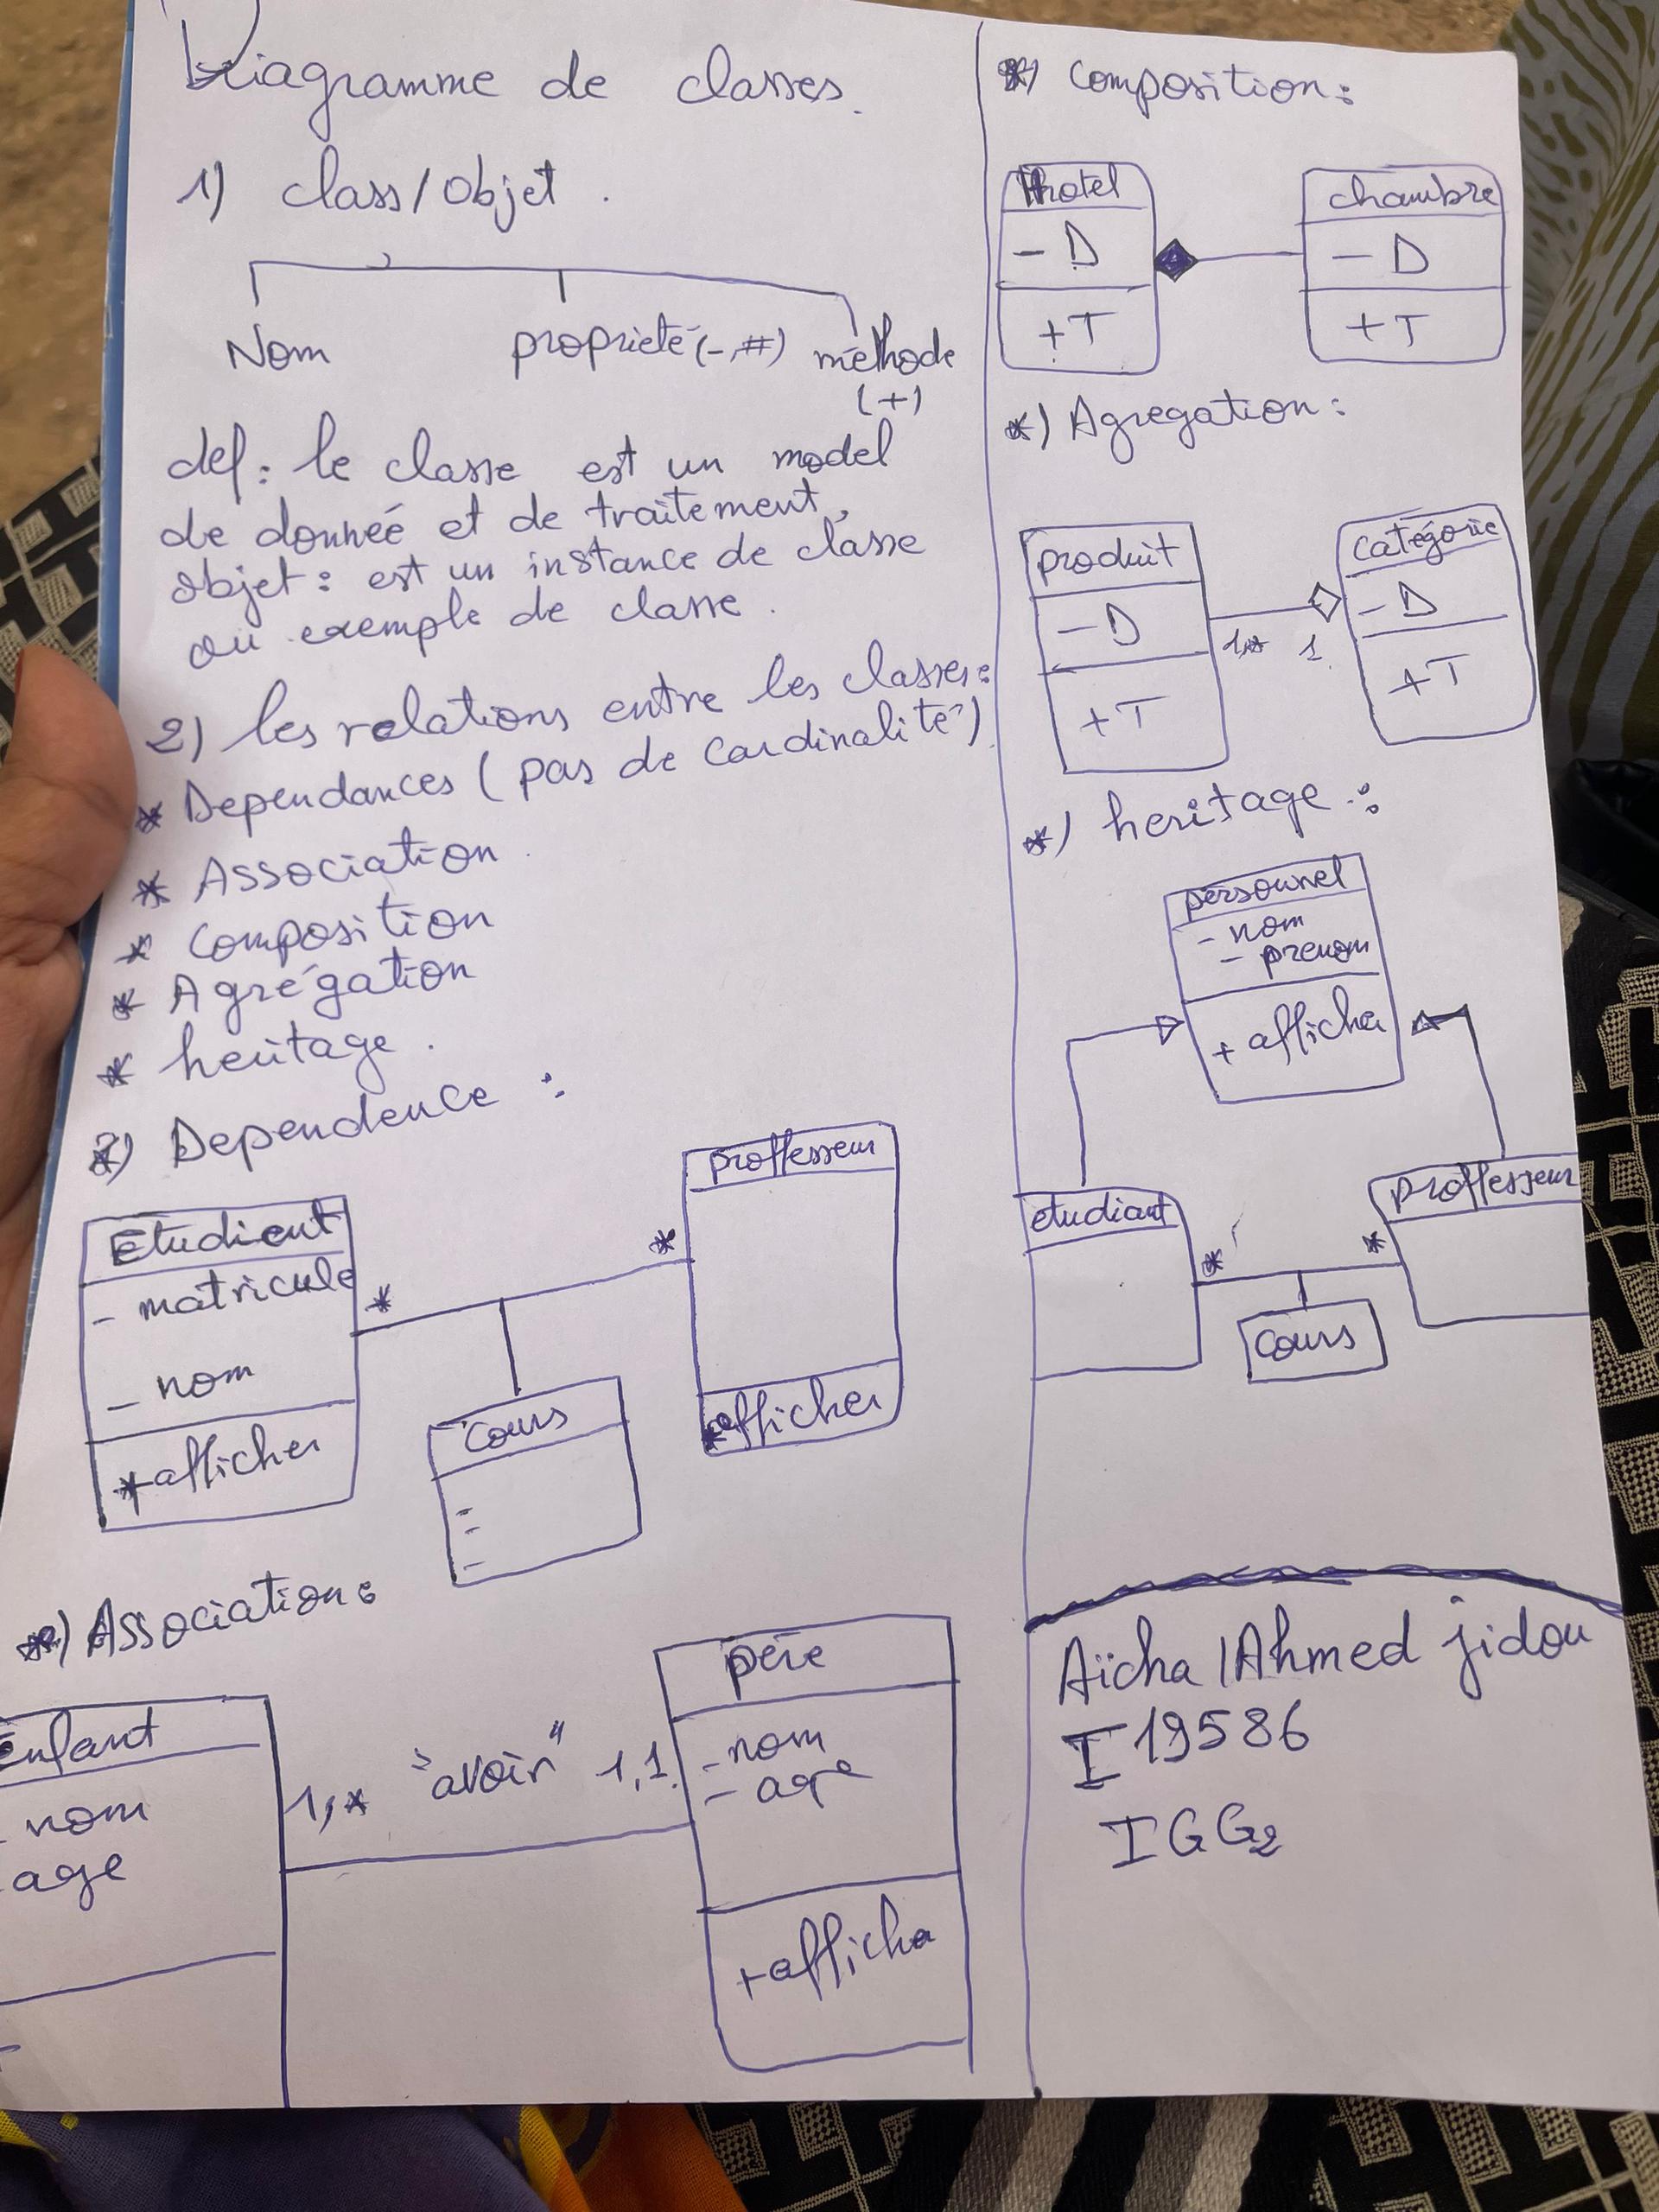 Diagramme de classes.
1) class/objet.
Nom
proprieté (-, #)
méthode
(+)
def: le classe est un model
de donneé et de traitement,
objet: est un instance de classe
ou exemple de classe.
2) les relations entre les classes:
* Dependances (pas de cardinalité)
* Association
* Composition
* Agrégation
* heritage.
*) Dependence:
Etudient
- matricule
- nom
+ afficher
*
*
proffesseur
+ afficher
cours
-
-
-
*) Association:
Enfant
nom
age
1,* "avoir" 1,1
père
- nom
- age
+ afficher
*) Composition:
hotel
- D
+ T
chambre
- D
+ T
*) Agregation:
produit
- D
+ T
1,* 1
catégorie
- D
+ T
*) heritage:
personnel
- nom
- prenom
+ afficher
etudiant
*
*
proffesseur
Cours
Aïcha /Ahmed jidou
I19586
IGG2